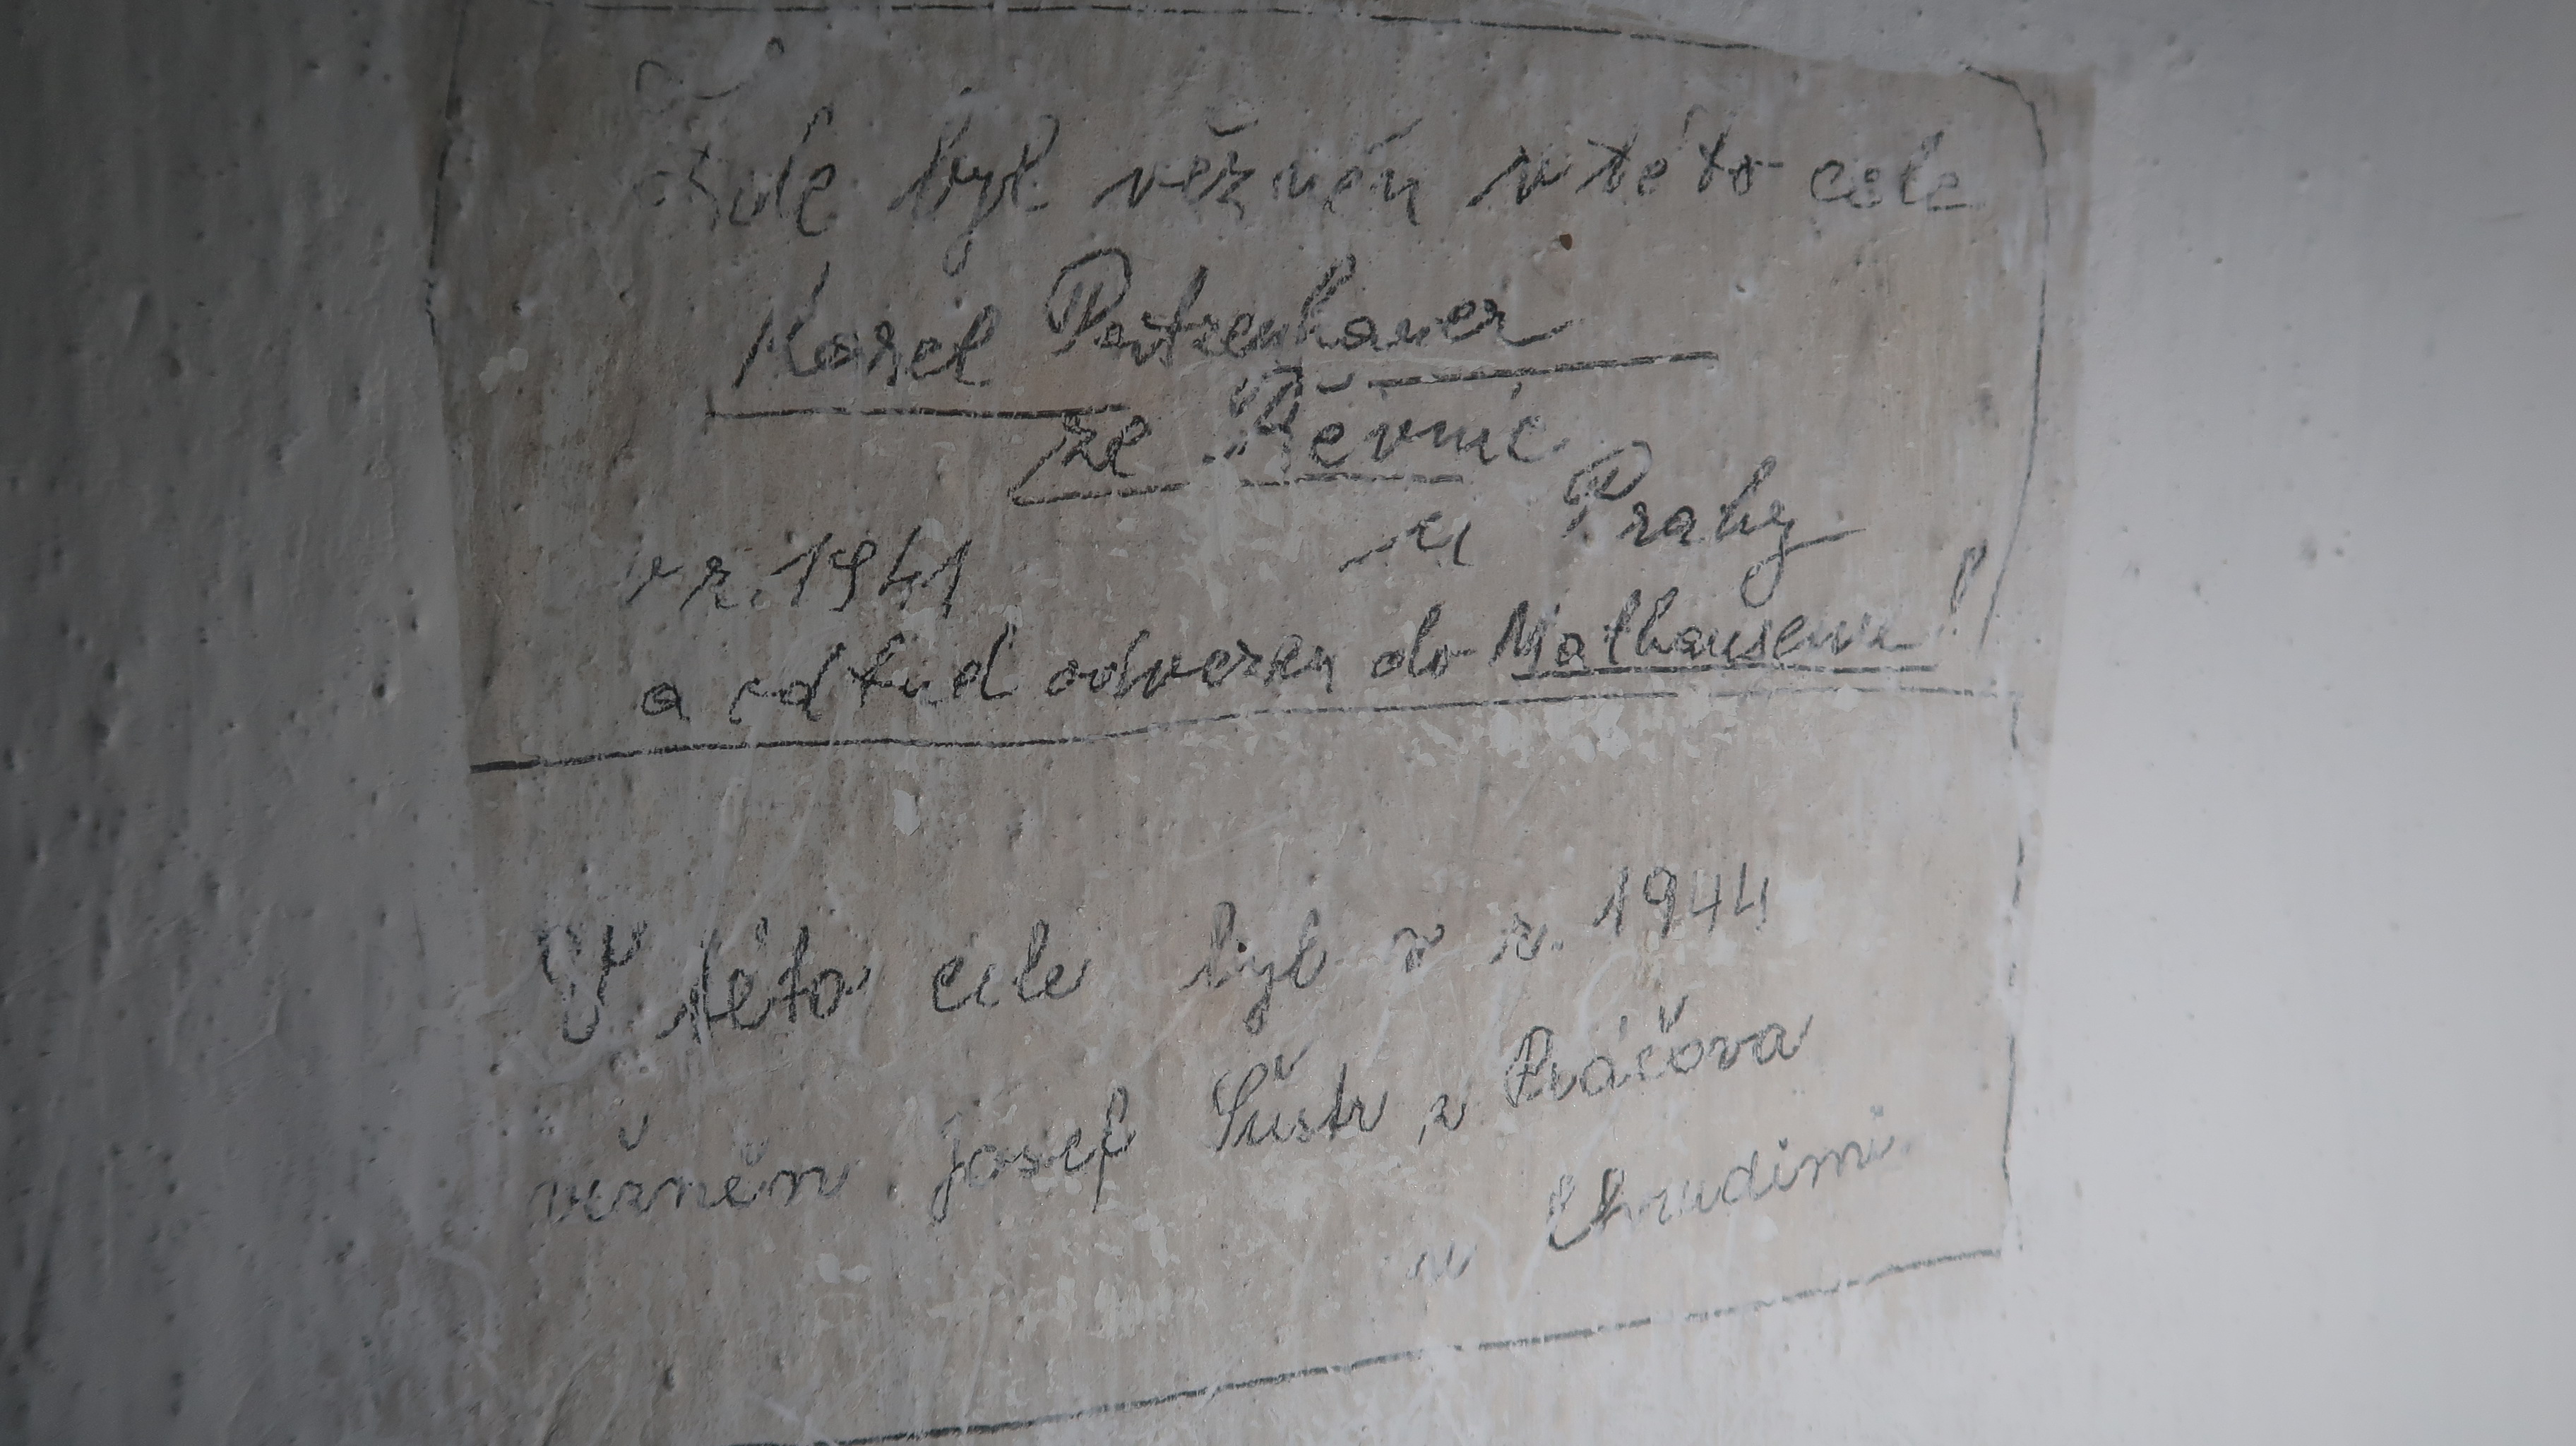 Zde byl vězněn v této cele
Karel Patzenhauer
ze Řevnic
u Prahy
v r. 1941
a odtud odvezen do Mathausenu!
V této cele byl v r. 1944
vězněn Josef Šustr, z Práčova
u Chrudimi.